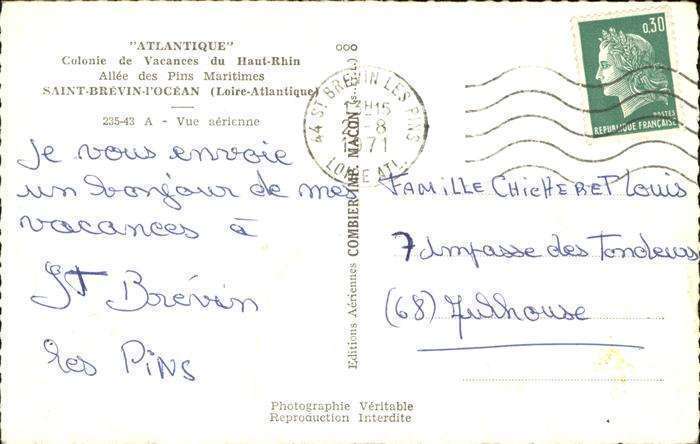 "ATLANTIQUE"
Colonie de Vacances du Haut-Rhin
Allée des Pins Maritimes
SAINT-BRÉVIN-l'OCÉAN (Loire-Atlantique)
235-43 A - Vue aérienne
Je vous envoie
un bonjour de mes
vacances à
St Brévin
les Pins
Editions Aériennes COMBIER IMP. MACON
44 ST BREVIN LES PINS
15
8
1971
LOIRE ATL.
0,30
POSTES
REPUBLIQUE FRANÇAISE
FAMILLE CHICHERET Louis
7 Impasse des Tondeurs
(68) Mulhouse
Photographie Véritable
Reproduction Interdite